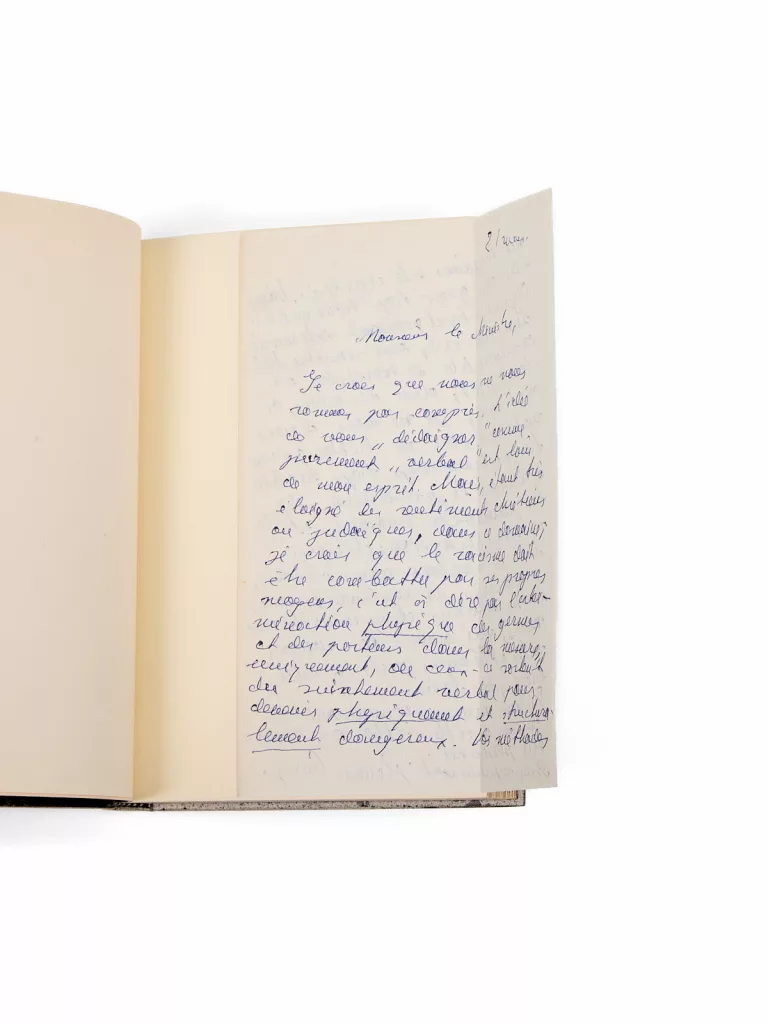 21 mars.
Monsieur le Ministre,
Je crois que nous ne nous
sommes pas compris. L'idée
de vous „dédaigner" comme
purement „verbal" est loin
de mon esprit. Mais, étant très
éloigné des sentiments chrétiens
ou judaïques, dans ce domaine,
je crois que le racisme doit
être combattu par ses propres
moyens, c'est à dire par l'exter-
mination physique des germes
et des porteurs dans la mesure,
uniquement, où ceux-ci
du verbal pour
devenir physiquement et structura-
lement dangereux. Vos méthodes